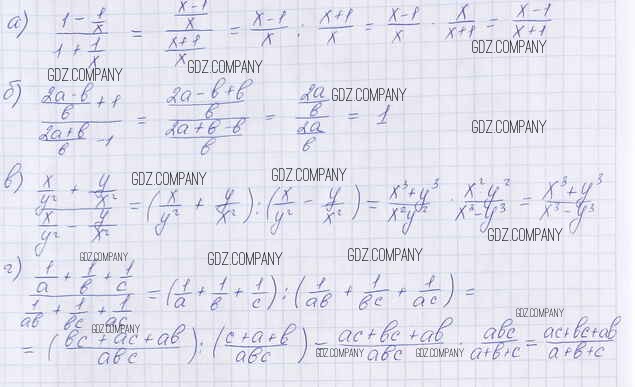 а) (1 - 1/x)/(1 + 1/x) = ((x-1)/x)/((x+1)/x) = (x-1)/x : (x+1)/x = (x-1)/x · x/(x+1) = (x-1)/(x+1)
GDZ.COMPANY GDZ.COMPANY GDZ.COMPANY
б) ((2a-b)/b + 1)/((2a+b)/b - 1) = ((2a-b+b)/b)/((2a+b-b)/b) = (2a/b)/(2a/b) = 1
GDZ.COMPANY GDZ.COMPANY
в) (x/y² + y/x²)/(x/y² - y/x²) = (x/y² + y/x²) : (x/y² - y/x²) = (x³+y³)/(x²y²) · (x²y²)/(x³-y³) = (x³+y³)/(x³-y³)
GDZ.COMPANY GDZ.COMPANY GDZ.COMPANY
г) (1/a + 1/b + 1/c)/(1/ab + 1/bc + 1/ac) = (1/a + 1/b + 1/c) : (1/ab + 1/bc + 1/ac) =
GDZ.COMPANY GDZ.COMPANY GDZ.COMPANY
= ((bc + ac + ab)/abc) : ((c+a+b)/abc) = (ac+bc+ab)/abc · abc/(a+b+c) = (ac+bc+ab)/(a+b+c)
GDZ.COMPANY GDZ.COMPANY GDZ.COMPANY GDZ.COMPANY